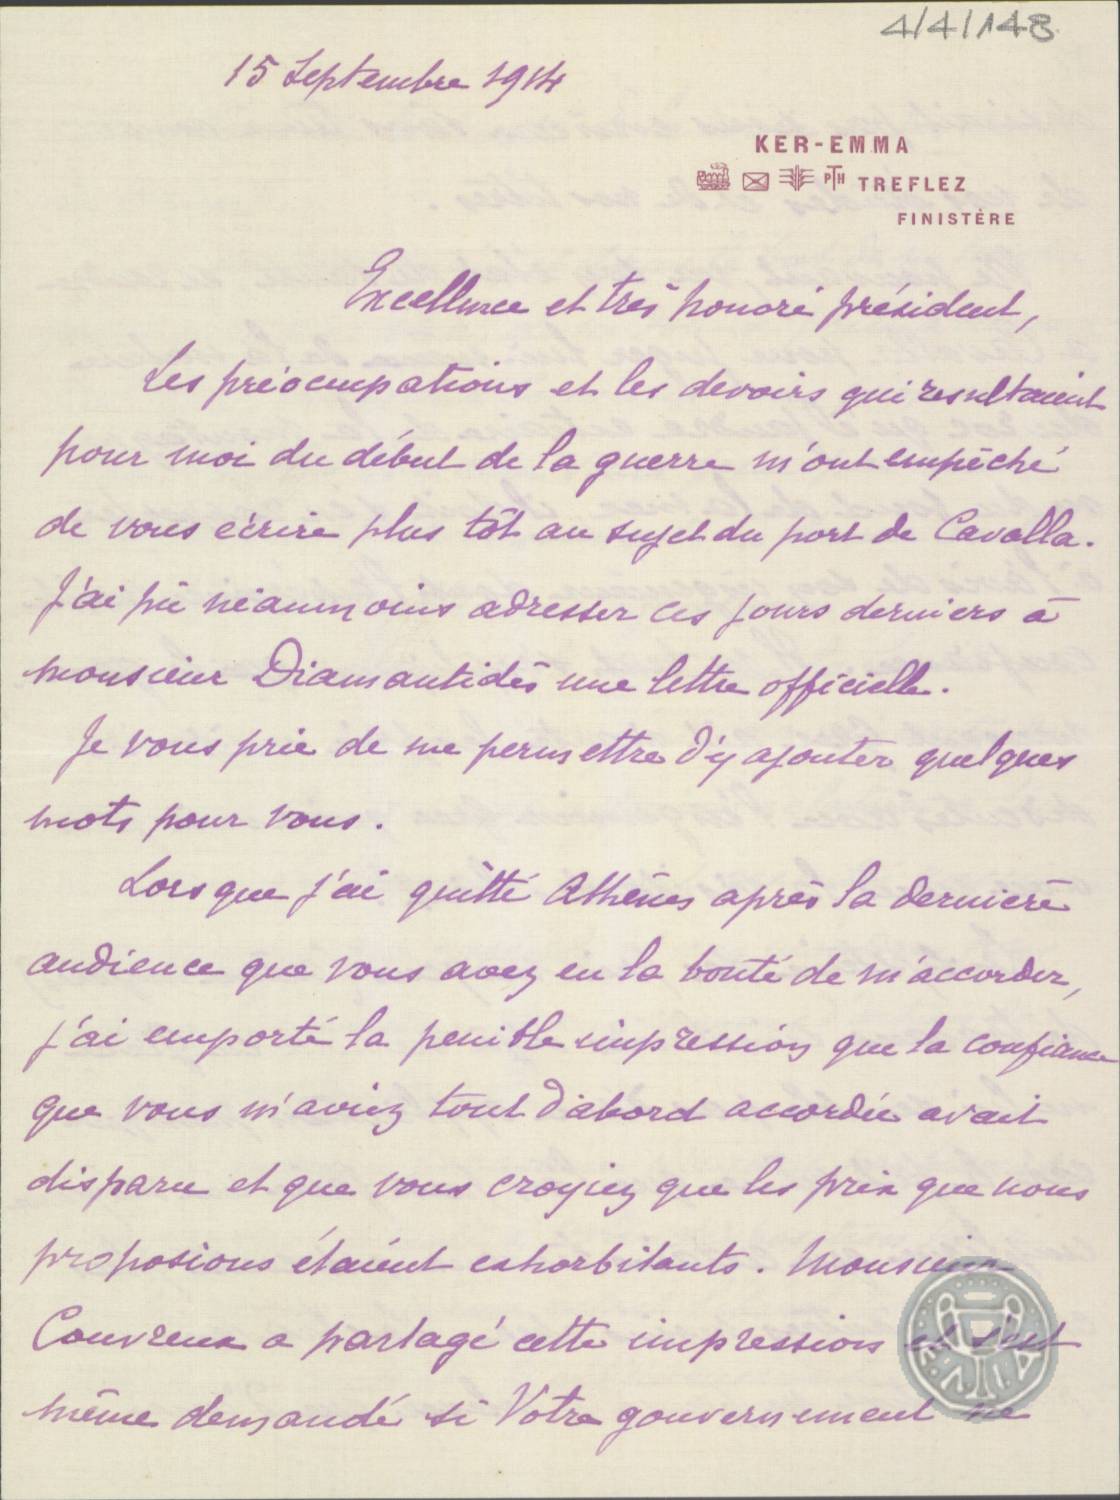 4/4/148
15 Septembre 1914
KER-EMMA
PTH TREFLEZ
FINISTÈRE
Excellence et très honoré président,
Les préoccupations et les devoirs qui resultaient
pour moi du début de la guerre m'ont empêché
de vous écrire plus tôt au sujet du port de Cavalla.
J'ai pû néanmoins adresser ces jours derniers à
monsieur Diamantidès une lettre officielle.
Je vous prie de me permettre d'y ajouter quelques
mots pour vous.
Lorsque j'ai quitté Athènes après la dernière
audience que vous avez eu la bonté de m'accorder,
j'ai emporté la penible impression que la confiance
que vous m'aviez tout d'abord accordée avait
disparu et que vous croyiez que les prix que nous
proposions étaient exhorbitants. Monsieur
Couvreux a partagé cette impression et s'est
même demandé si Votre gouvernement ne